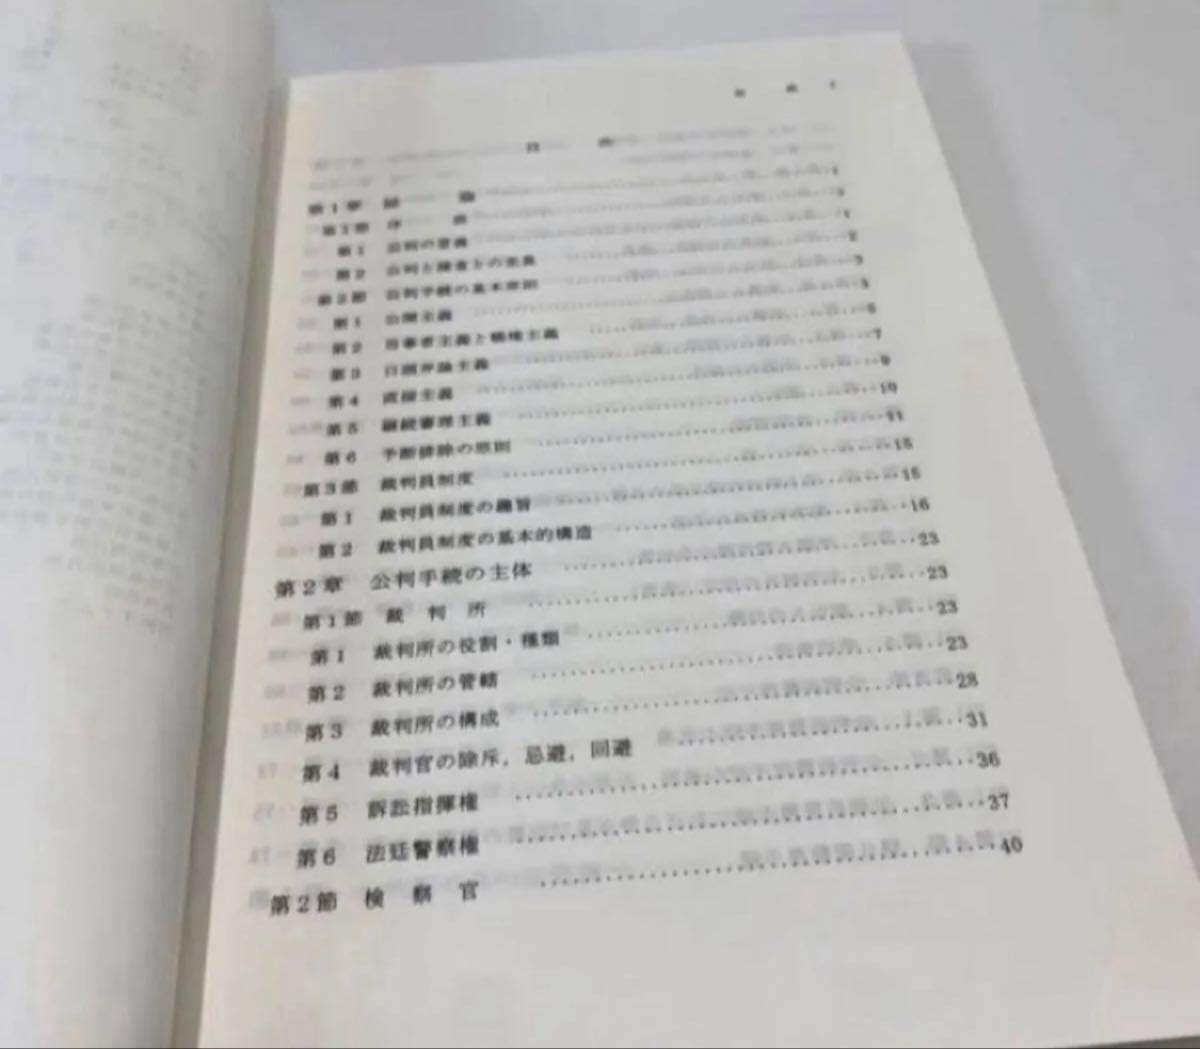 目次 1
目次
第1章 総論 1
第1節 序説 1
第1 公判の意義 1
第2 公判と捜査との差異 2
第2節 公判手続の基本原則 3
第1 公開主義 3
第2 当事者主義と職権主義 5
第3 口頭弁論主義 7
第4 直接主義 9
第5 継続審理主義 10
第6 予断排除の原則 11
第3節 裁判員制度 15
第1 裁判員制度の趣旨 15
第2 裁判員制度の基本的構造 16
第2章 公判手続の主体 23
第1節 裁判所 23
第1 裁判所の役割・種類 23
第2 裁判所の管轄 23
第3 裁判所の構成 28
第4 裁判官の除斥,忌避,回避 31
第5 訴訟指揮権 36
第6 法廷警察権 37
第2節 検察官 40